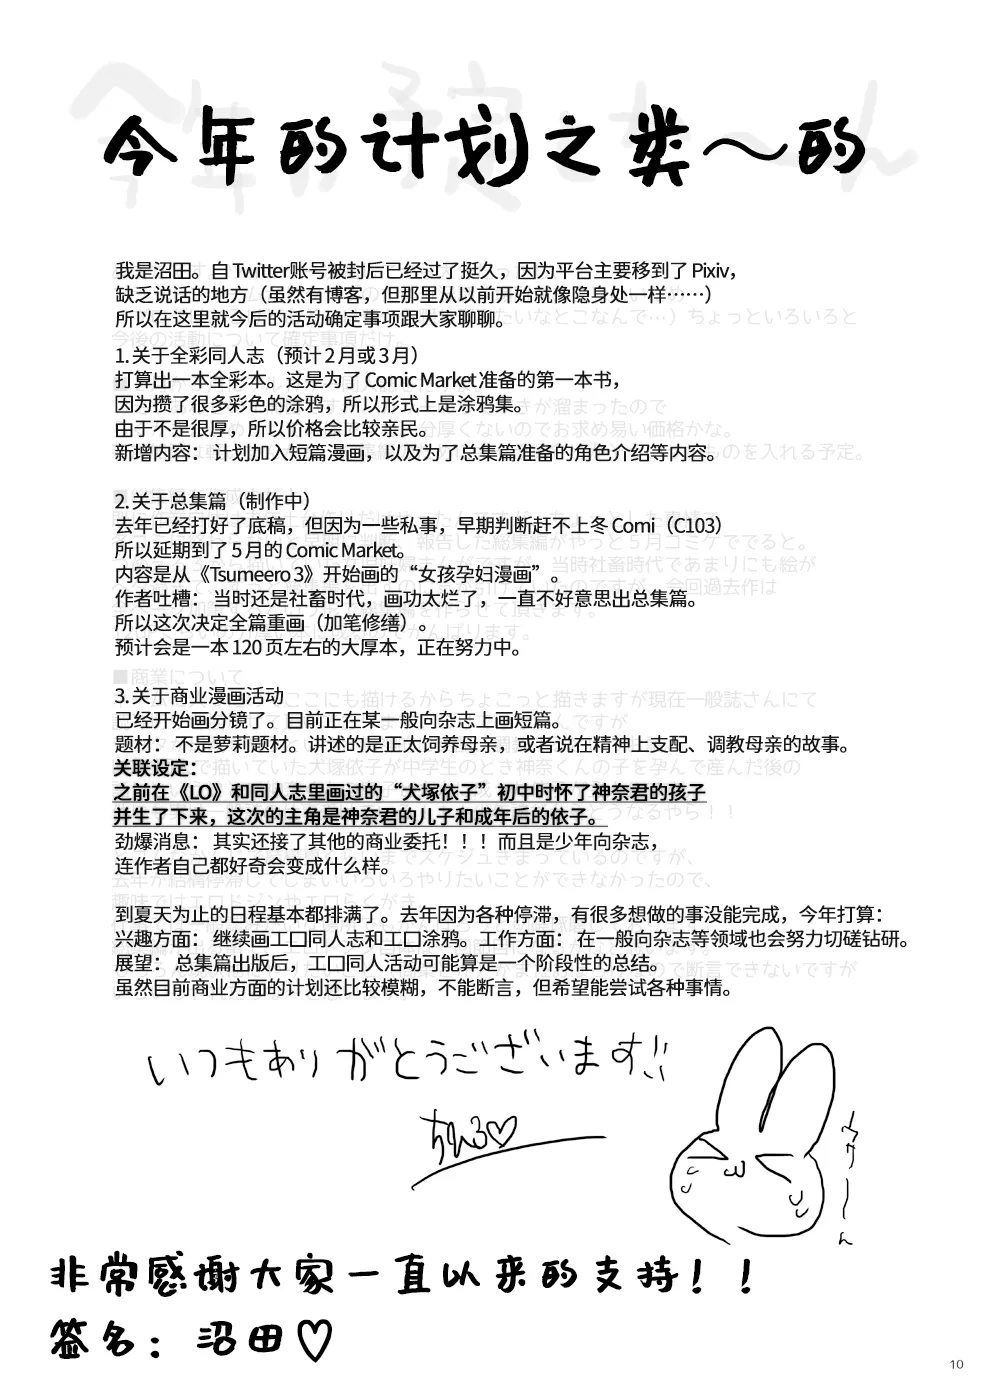 今年的计划之类～的
我是沼田。自Twitter账号被封后已经过了挺久，因为平台主要移到了Pixiv，
缺乏说话的地方（虽然有博客，但那里从以前开始就像隐身处一样……）
所以在这里就今后的活动确定事项跟大家聊聊。
1. 关于全彩同人志（预计2月或3月）
打算出一本全彩本。这是为了Comic Market准备的第一本书，
因为攒了很多彩色的涂鸦，所以形式上是涂鸦集。
由于不是很厚，所以价格会比较亲民。
新增内容：计划加入短篇漫画，以及为了总集篇准备的角色介绍等内容。
2. 关于总集篇（制作中）
去年已经打好了底稿，但因为一些私事，早期判断赶不上冬Comi（C103）
所以延期到了5月的Comic Market。
内容是从《Tsumeero 3》开始画的“女孩孕妇漫画”。
作者吐槽：当时还是社畜时代，画功太烂了，一直不好意思出总集篇。
所以这次决定全篇重画（加笔修缮）。
预计会是一本120页左右的大厚本，正在努力中。
3. 关于商业漫画活动
已经开始画分镜了。目前正在某一般向杂志上画短篇。
题材：不是萝莉题材。讲述的是正太饲养母亲，或者说在精神上支配、调教母亲的故事。
关联设定：
之前在《LO》和同人志里画过的“犬塚依子”初中时怀了神奈君的孩子
并生了下来，这次的主角是神奈君的儿子和成年后的依子。
劲爆消息：其实还接了其他的商业委托！！！而且是少年向杂志，
连作者自己都好奇会变成什么样。
到夏天为止的日程基本都排满了。去年因为各种停滞，有很多想做的事没能完成，今年打算：
兴趣方面：继续画工口同人志和工口涂鸦。工作方面：在一般向杂志等领域也会努力切磋钻研。
展望：总集篇出版后，工口同人活动可能算是一个阶段性的总结。
虽然目前商业方面的计划还比较模糊，不能断言，但希望能尝试各种事情。
いつもありがとうございます!!
非常感谢大家一直以来的支持！！
签名：沼田♡
10